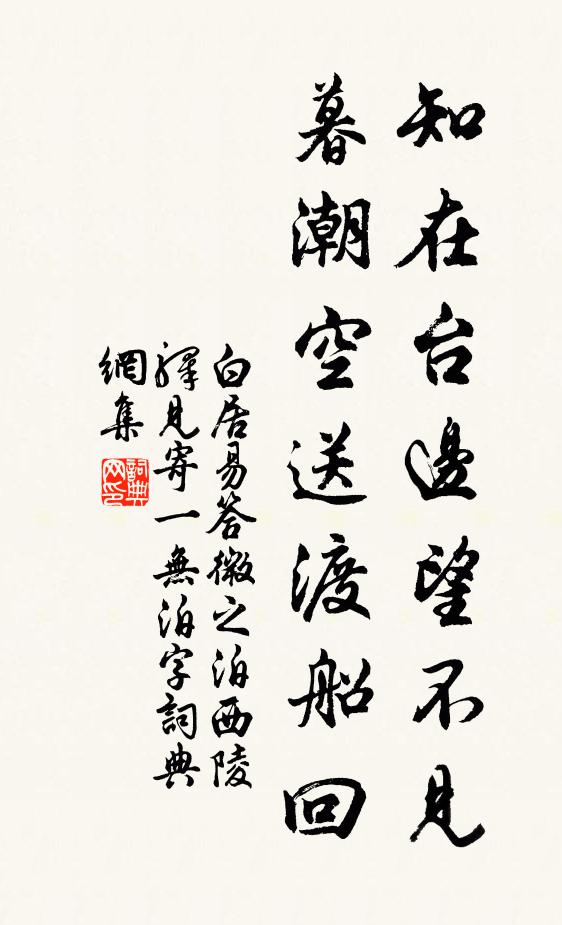 知在台邊望不見
暮潮空送渡船回
白居易答微之泊西陵
驛見寄一無泊字詞典
網集
詞典
网印